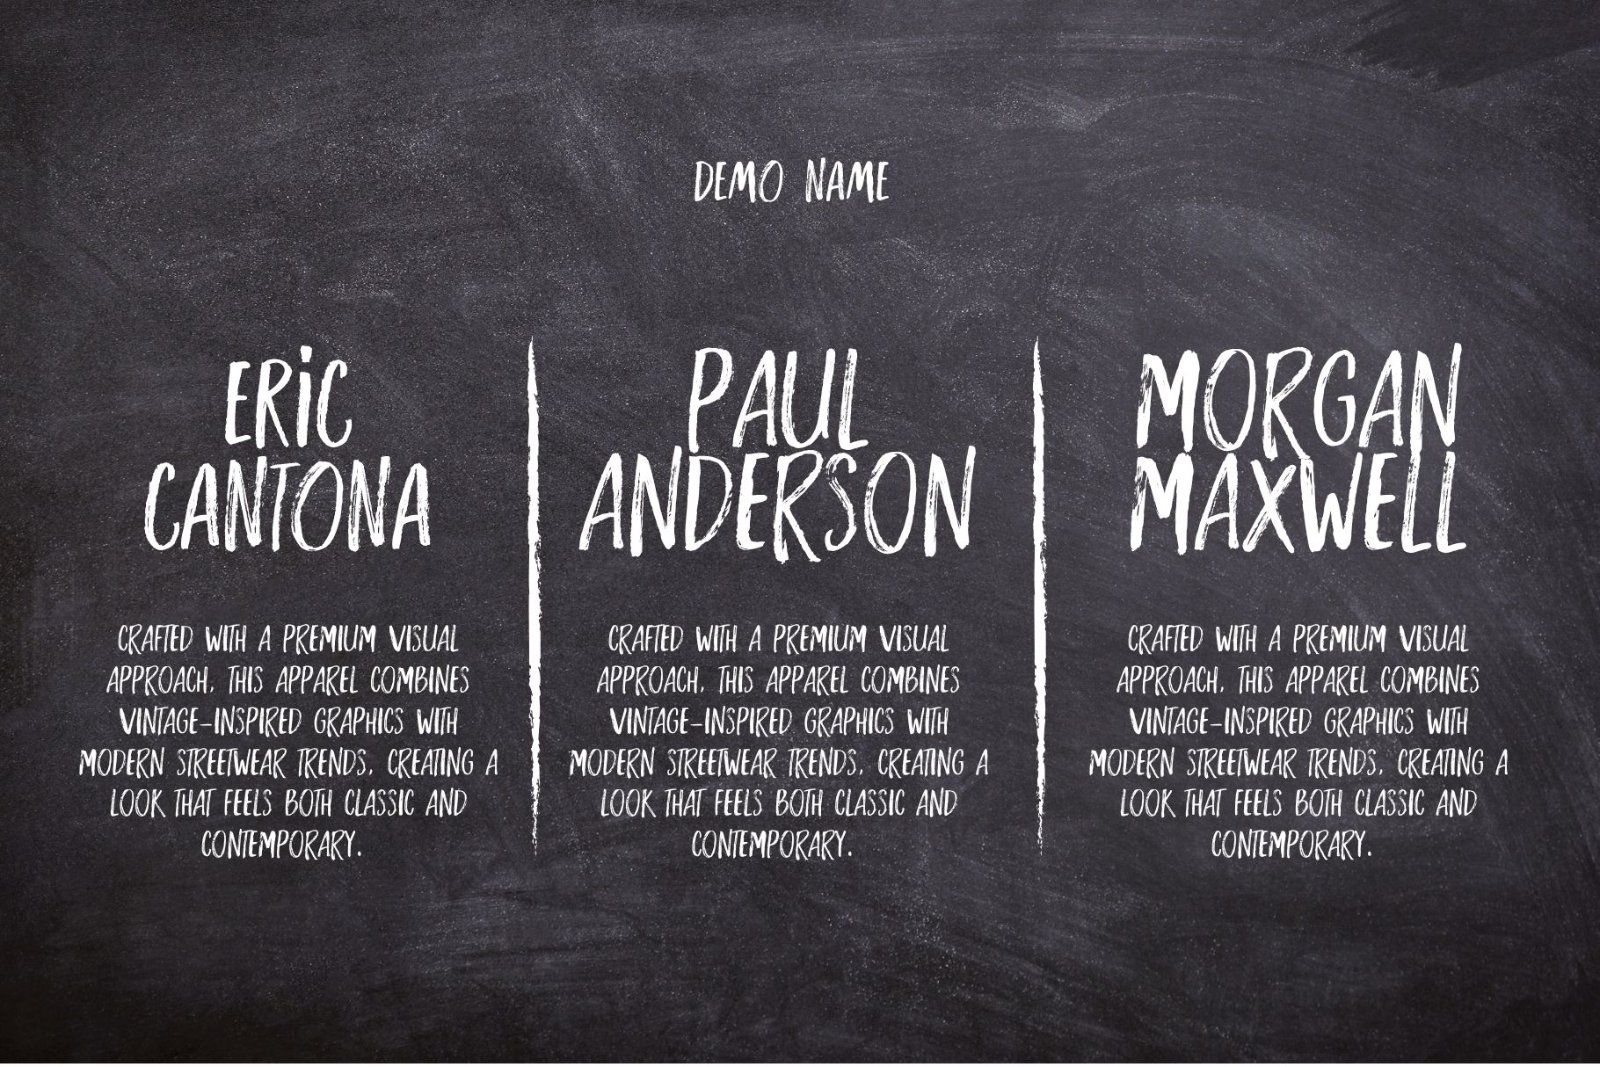 DEMO NAME
ERIC
CANTONA
CRAFTED WITH A PREMIUM VISUAL
APPROACH, THIS APPAREL COMBINES
VINTAGE-INSPIRED GRAPHICS WITH
MODERN STREETWEAR TRENDS, CREATING A
LOOK THAT FEELS BOTH CLASSIC AND
CONTEMPORARY.
PAUL
ANDERSON
CRAFTED WITH A PREMIUM VISUAL
APPROACH, THIS APPAREL COMBINES
VINTAGE-INSPIRED GRAPHICS WITH
MODERN STREETWEAR TRENDS, CREATING A
LOOK THAT FEELS BOTH CLASSIC AND
CONTEMPORARY.
MORGAN
MAXWELL
CRAFTED WITH A PREMIUM VISUAL
APPROACH, THIS APPAREL COMBINES
VINTAGE-INSPIRED GRAPHICS WITH
MODERN STREETWEAR TRENDS, CREATING A
LOOK THAT FEELS BOTH CLASSIC AND
CONTEMPORARY.